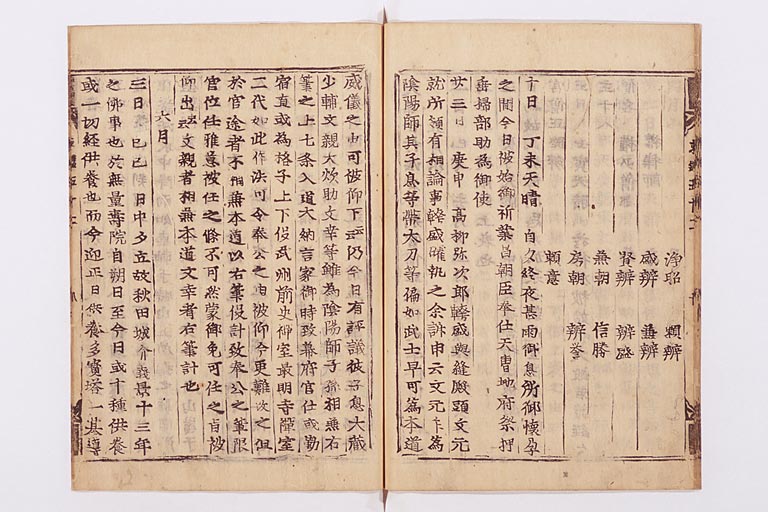 浄昭　頼辨
盛辨　兼辨
賢辨　辨盛
兼朝　信勝
房朝　辨誉
頼意
十日　丁未天晴　自夕終夜甚雨御息所御懐孕
之間今日被始御祈業昌朝臣奉仕天曹地府祭押
垂掃部助為御使
廿三日　庚申　高柳弥次郎幹盛與縫殿頭文元
就所領有相論事幹盛確執之余訴申云文元乍為
陰陽師其子息等帯太刀等偏如武士早可為本道
威儀之由可被仰下云仍今日有評議彼子息大蔵
少輔文親大炊助文幸等雖為陰陽師子孫相兼右
筆之上七条入道大納言家御時致幕府官仕或勤
宿直或為格子上下役武州前史禅室最明寺禅室
二代如此作法可令奉公之由被仰今更難改之但
於官途者不相兼本道以右筆役計致奉公之輩限
官位任雅意被任之條不可然蒙御免可任之旨被
仰出云文親者相兼本道文幸者右筆計也
六月
三日　己巳　日中夕立故秋田城介義景十三年
之佛事也於無量壽院自朔日至今日或十種供養
或一切経供養也而今迎正日供養多寳塔一基導